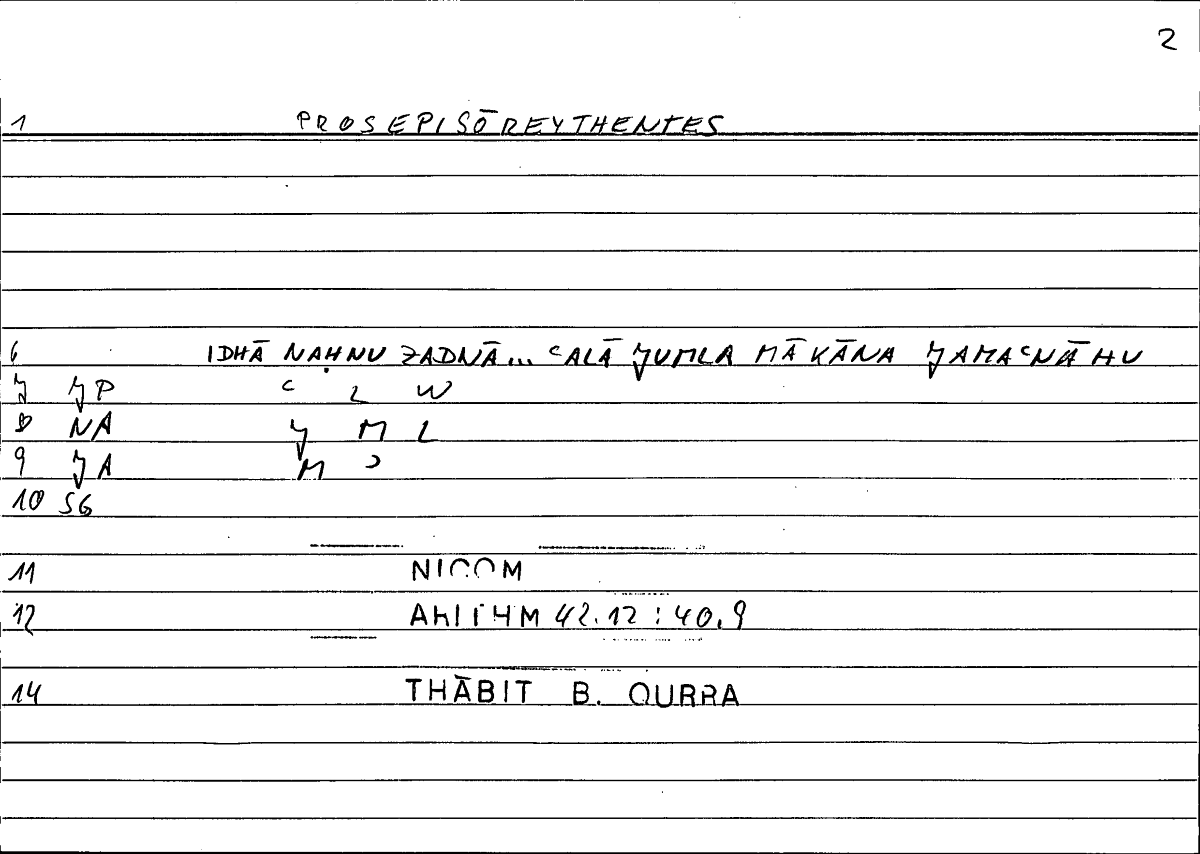 2
1 PROSEPISŌREYTHENTES
6 IDHĀ NAḤNU ZADNĀ... ᶜALĀ JUMLA MĀ KĀNA JAMAᶜNĀHU
J JP ᶜ L W
8 NA J M L
9 JA M ʾ
10 SG
11 NICOM
12 ARITHM 42.12 : 40.9
14 THĀBIT B. QURRA